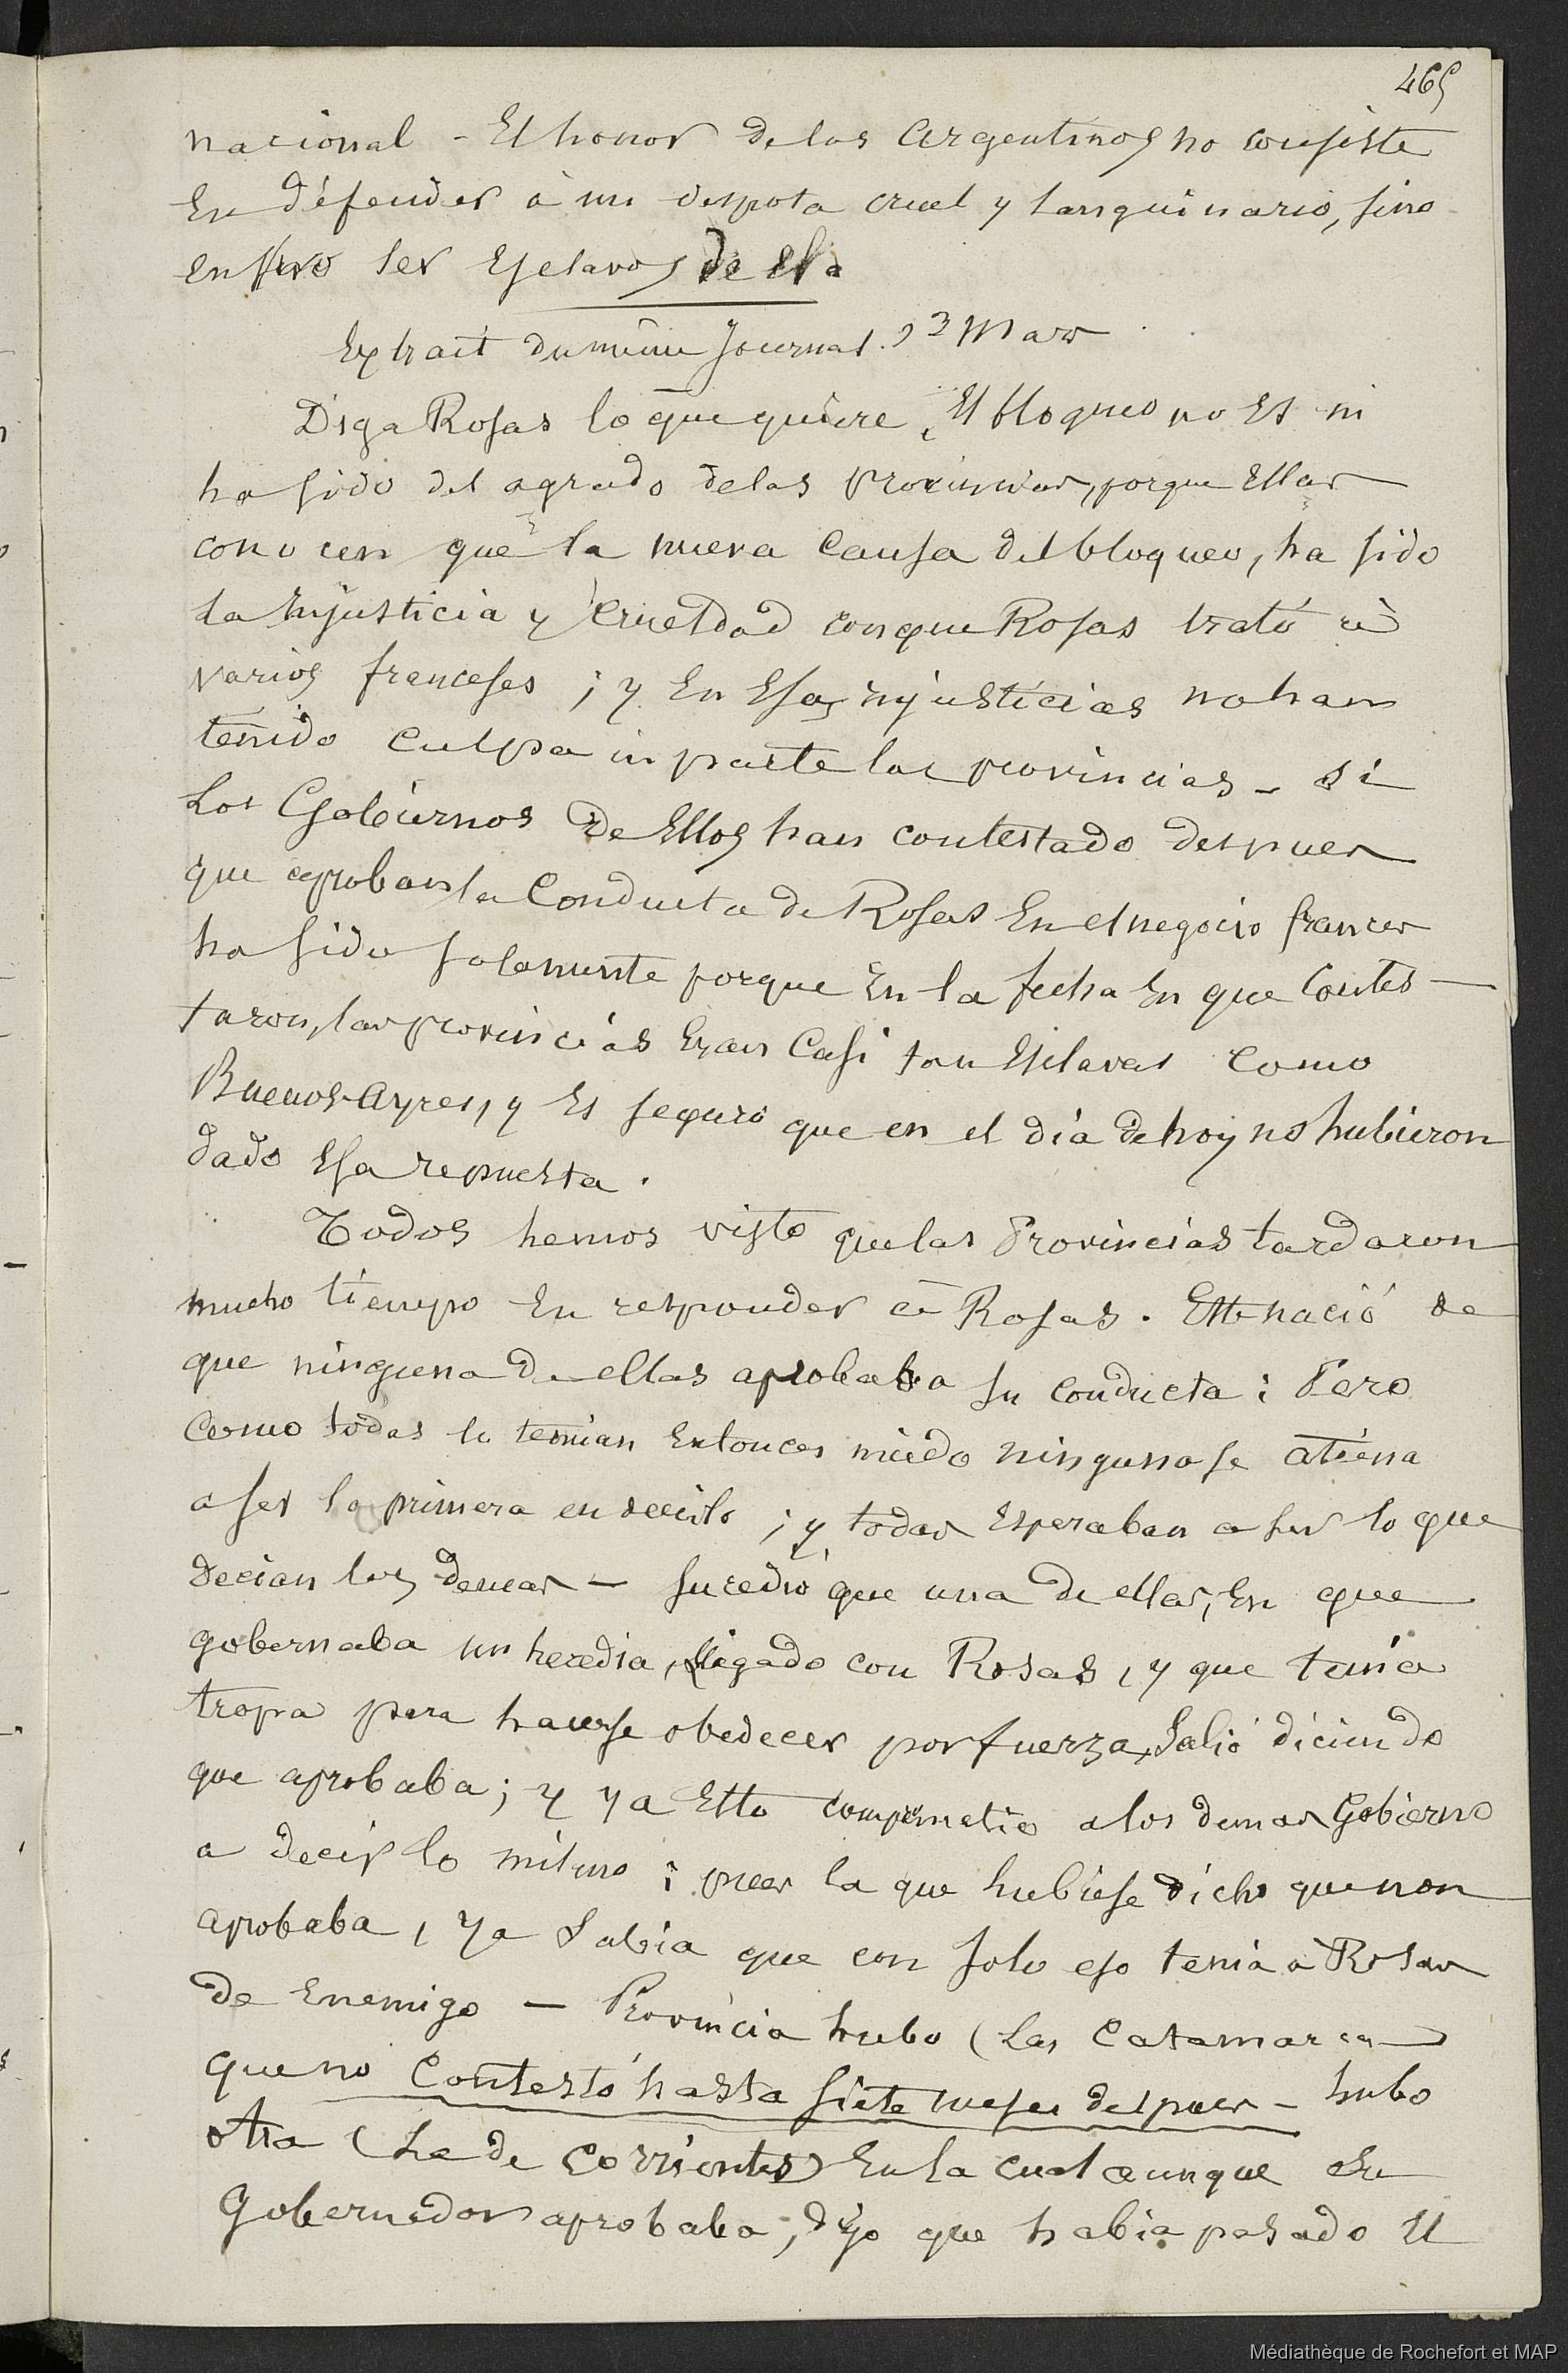 465
nacional - El honor de los Argentinos no consiste
En défender à un despota cruel y sanguinario, sino
en no ser Esclavos de el
Extrait du même Journal. 23 Mars
Diga Rosas lo que quiere, El bloqueo no Es ni
ha sido del agrado de las provincias, porque Ellas
conocen que la nueva Causa del bloqueo, ha sido
La injusticia y Crueldad con que Rosas trató à
varios franceses ; y En Esas injusticias no han
tenido Culpa ni parte las provincias - Si
Los Gobiernos de Ellos han contestado despues
que aproban la Conducta de Rosas En el negocio frances
ha sido solamente porque En la fecha En que Contes-
taron, las provincias Eran Casi tan Esclavas Como
Buenos-Ayres, y Es seguro que en el dia de hoy no hubieron
dado Esa repuesta.
Todos hemos visto que las Provincias tardaron
mucho tiempo En responder à Rosas. Esto nació de
que ninguna de ellas aprobaba su conducta ; Pero
Como todas le temian Entonces miedo ninguna se
a ser la primera en decirlo ; y todas Esperaban a ver lo que
decian los demas - Sucedió que una de ellas, En que
gobernaba un heredia, ligado con Rosas, y que tenia
tropa para hacerse obedecer por fuerza, Salió diciendo
que aprobaba ; y ya Esto comprometio a los demas Gobierno
a decir lo mismo ; pues la que hubiese dicho que non
aprobaba, ya Sabia que con solo eso tenia à Rosas
de Enemigo - Provincia hubo (Las Catamarca)
que no Contestó hasta siete meses despues - hubo
otra (La de Corrientes) En la cual aunque Su
Gobernador aprobaba, dijo que habia pasado El
Médiathèque de Rochefort et MAP